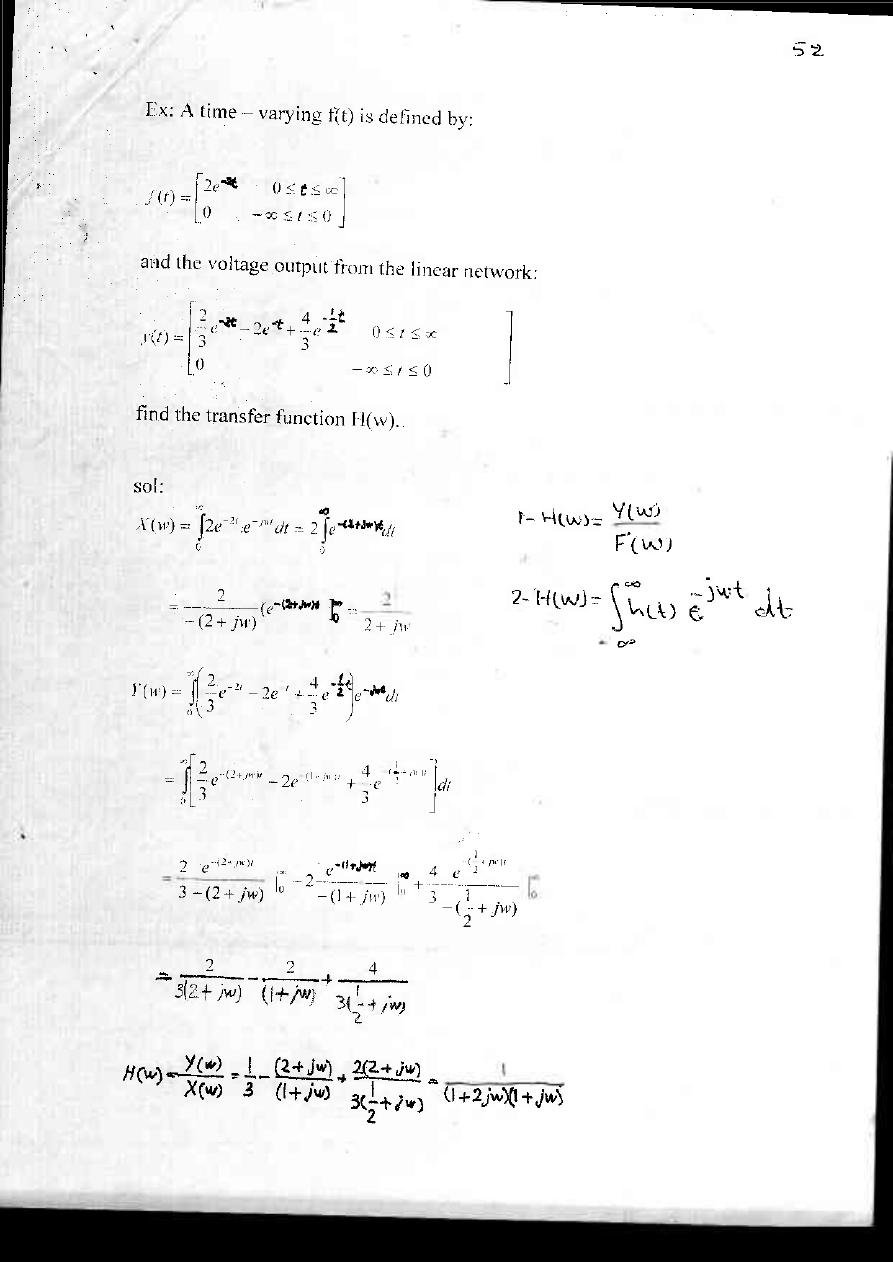 52
Ex: A time – varying f(t) is defined by:
f(t) = [2e^-2t 0 ≤ t ≤ ∞
0 -∞ ≤ t ≤ 0]
and the voltage output from the linear network:
y(t) = [2/3 e^-2t - 2e^-t + 4/3 e^-1/2t 0 ≤ t ≤ ∞
0 -∞ ≤ t ≤ 0]
find the transfer function H(w)..
sol:
X(w) = ∫_0^∞ 2e^-2t .e^-jwt dt = 2 ∫_0^∞ e^-(2+jw)t dt
= 2/-(2 + jw) (e^-(2+jw)t |_0^∞ = 2/2 + jw
Y(w) = ∫_0^∞ (2/3 e^-2t - 2e^-t + 4/3 e^-1/2t) e^-jwt dt
= ∫_0^∞ [2/3 e^-(2+jw)t - 2e^-(1+jw)t + 4/3 e^-(1/2+jw)t] dt
= 2/3 e^-(2+jw)t/-(2 + jw) |_0^∞ - 2 e^-(1+jw)t/-(1 + jw) |_0^∞ + 4/3 e^-(1/2+jw)t/-(1/2 + jw) |_0^∞
= 2/3(2 + jw) - 2/(1+jw) + 4/3(1/2 + jw)
H(w) = Y(w)/X(w) = 1/3 - (2+jw)/(1+jw) + 2(2+jw)/3(1/2+jw) = 1/(1+2jw)(1+jw)
1- H(w) = Y(w)/F(w)
2- H(w) = ∫_-∞^∞ h(t) e^-jwt dt